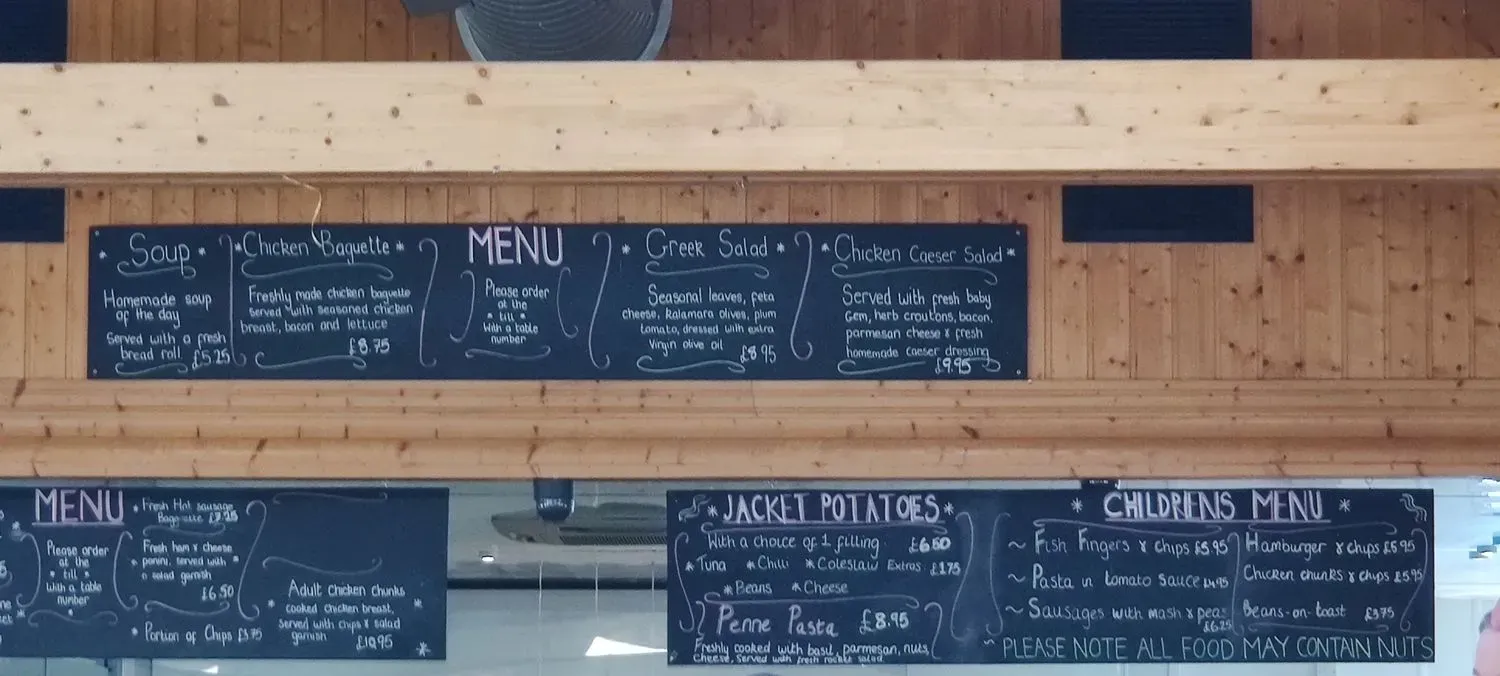 * Soup *
Homemade soup
of the day
Served with a fresh
bread roll £5.25
* Chicken Baguette *
Freshly made chicken baguette
served with seasoned chicken
breast, bacon and lettuce
£8.75
MENU
Please order
at the
* till *
With a table
number
* Greek Salad *
Seasonal leaves, feta
cheese, kalamara olives, plum
tomato, dressed with extra
Virgin olive oil £8.95
* Chicken Caeser Salad *
Served with fresh baby
Gem, herb croutons, bacon,
parmesan cheese & fresh
homemade caeser dressing
£9.95
MENU
Please order
at the
* till *
With a table
number
* Fresh Hot sausage
Baguette £7.25
Fresh ham & cheese
* panini, served with *
a salad garnish
£6.50
* Portion of Chips £3.75
Adult chicken chunks
* cooked chicken breast, *
Served with chips & salad
garnish £10.95
* JACKET POTATOES *
With a choice of 1 filling £6.50
* Tuna * Chilli * Coleslaw Extras £1.75
* Beans * Cheese
Penne Pasta £8.95
Freshly cooked with basil, parmesan, nuts
cheese, served with fresh rocket salad
* CHILDRENS MENU *
~ Fish Fingers & chips £5.95
~ Pasta in tomato sauce £4.95
~ Sausages with mash & peas
£6.25
Hamburger & chips £5.95
Chicken chunks & chips £5.95
Beans-on-toast £3.75
~ PLEASE NOTE ALL FOOD MAY CONTAIN NUTS